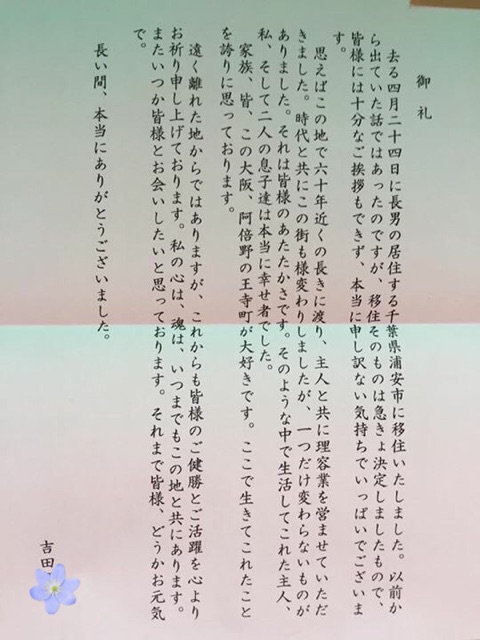 御礼
去る四月二十四日に長男の居住する千葉県浦安市に移住いたしました。以前か
ら出ていた話ではあったのですが、移住そのものは急きょ決定しましたもので、
皆様には十分なご挨拶もできず、本当に申し訳ない気持ちでいっぱいでございま
す。
思えばこの地で六十年近くの長きに渡り、主人と共に理容業を営ませていただ
きました。時代と共にこの街も様変わりしましたが、一つだけ変わらないものが
ありました。それは皆様のあたたかさです。そのような中で生活してこれた主人、
私、そして二人の息子達は本当に幸せ者でした。
家族、皆、この大阪、阿倍野の王寺町が大好きです。ここで生きてこれたこと
を誇りに思っております。
遠く離れた地からではありますが、これからも皆様のご健勝とご活躍を心より
お祈り申し上げております。私の心は、魂は、いつまでもこの地と共にあります。
またいつか皆様とお会いしたいと思っております。それまで皆様、どうかお元気
で。
長い間、本当にありがとうございました。
吉田